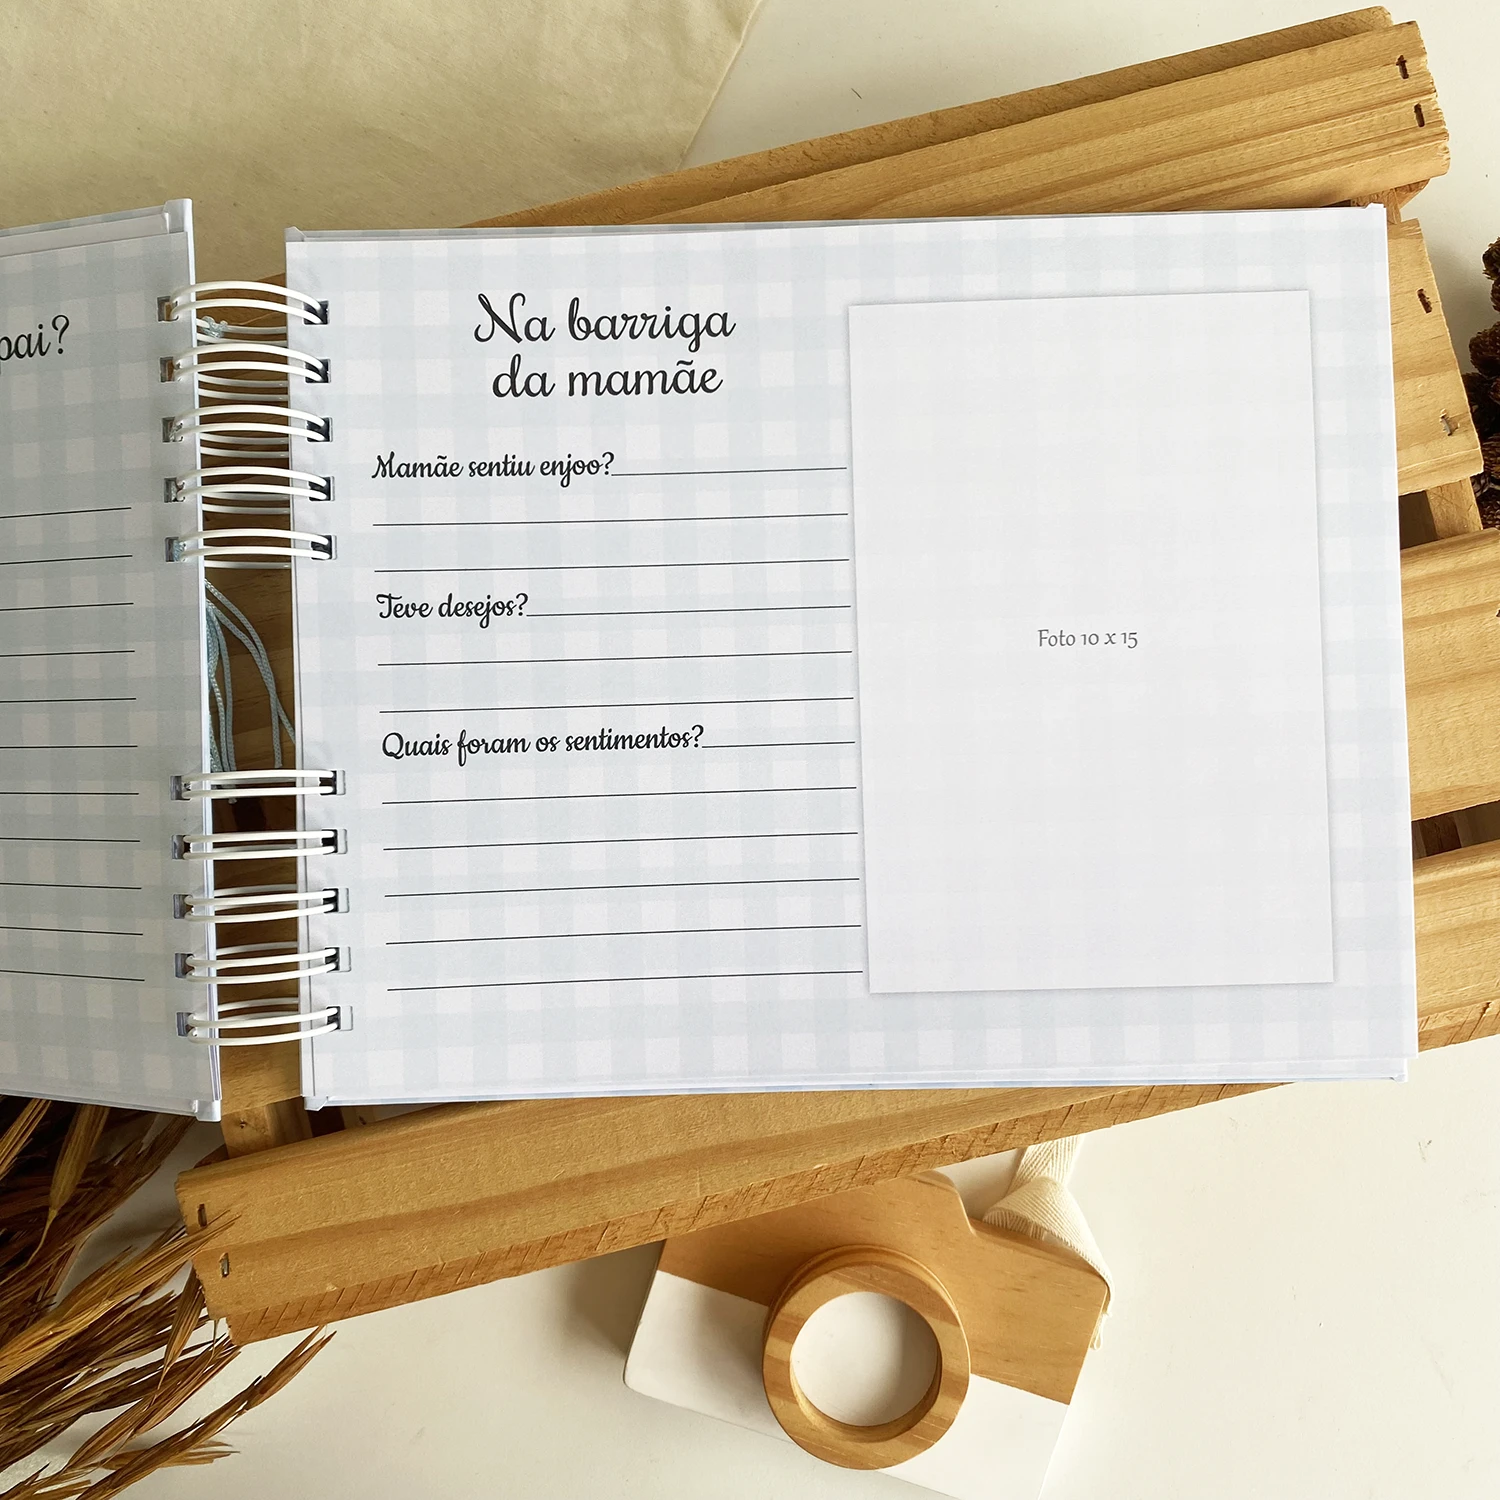 pai?
Na barriga
da mamãe
Mamãe sentiu enjoo?
Teve desejos?
Quais foram os sentimentos?
Foto 10 x 15